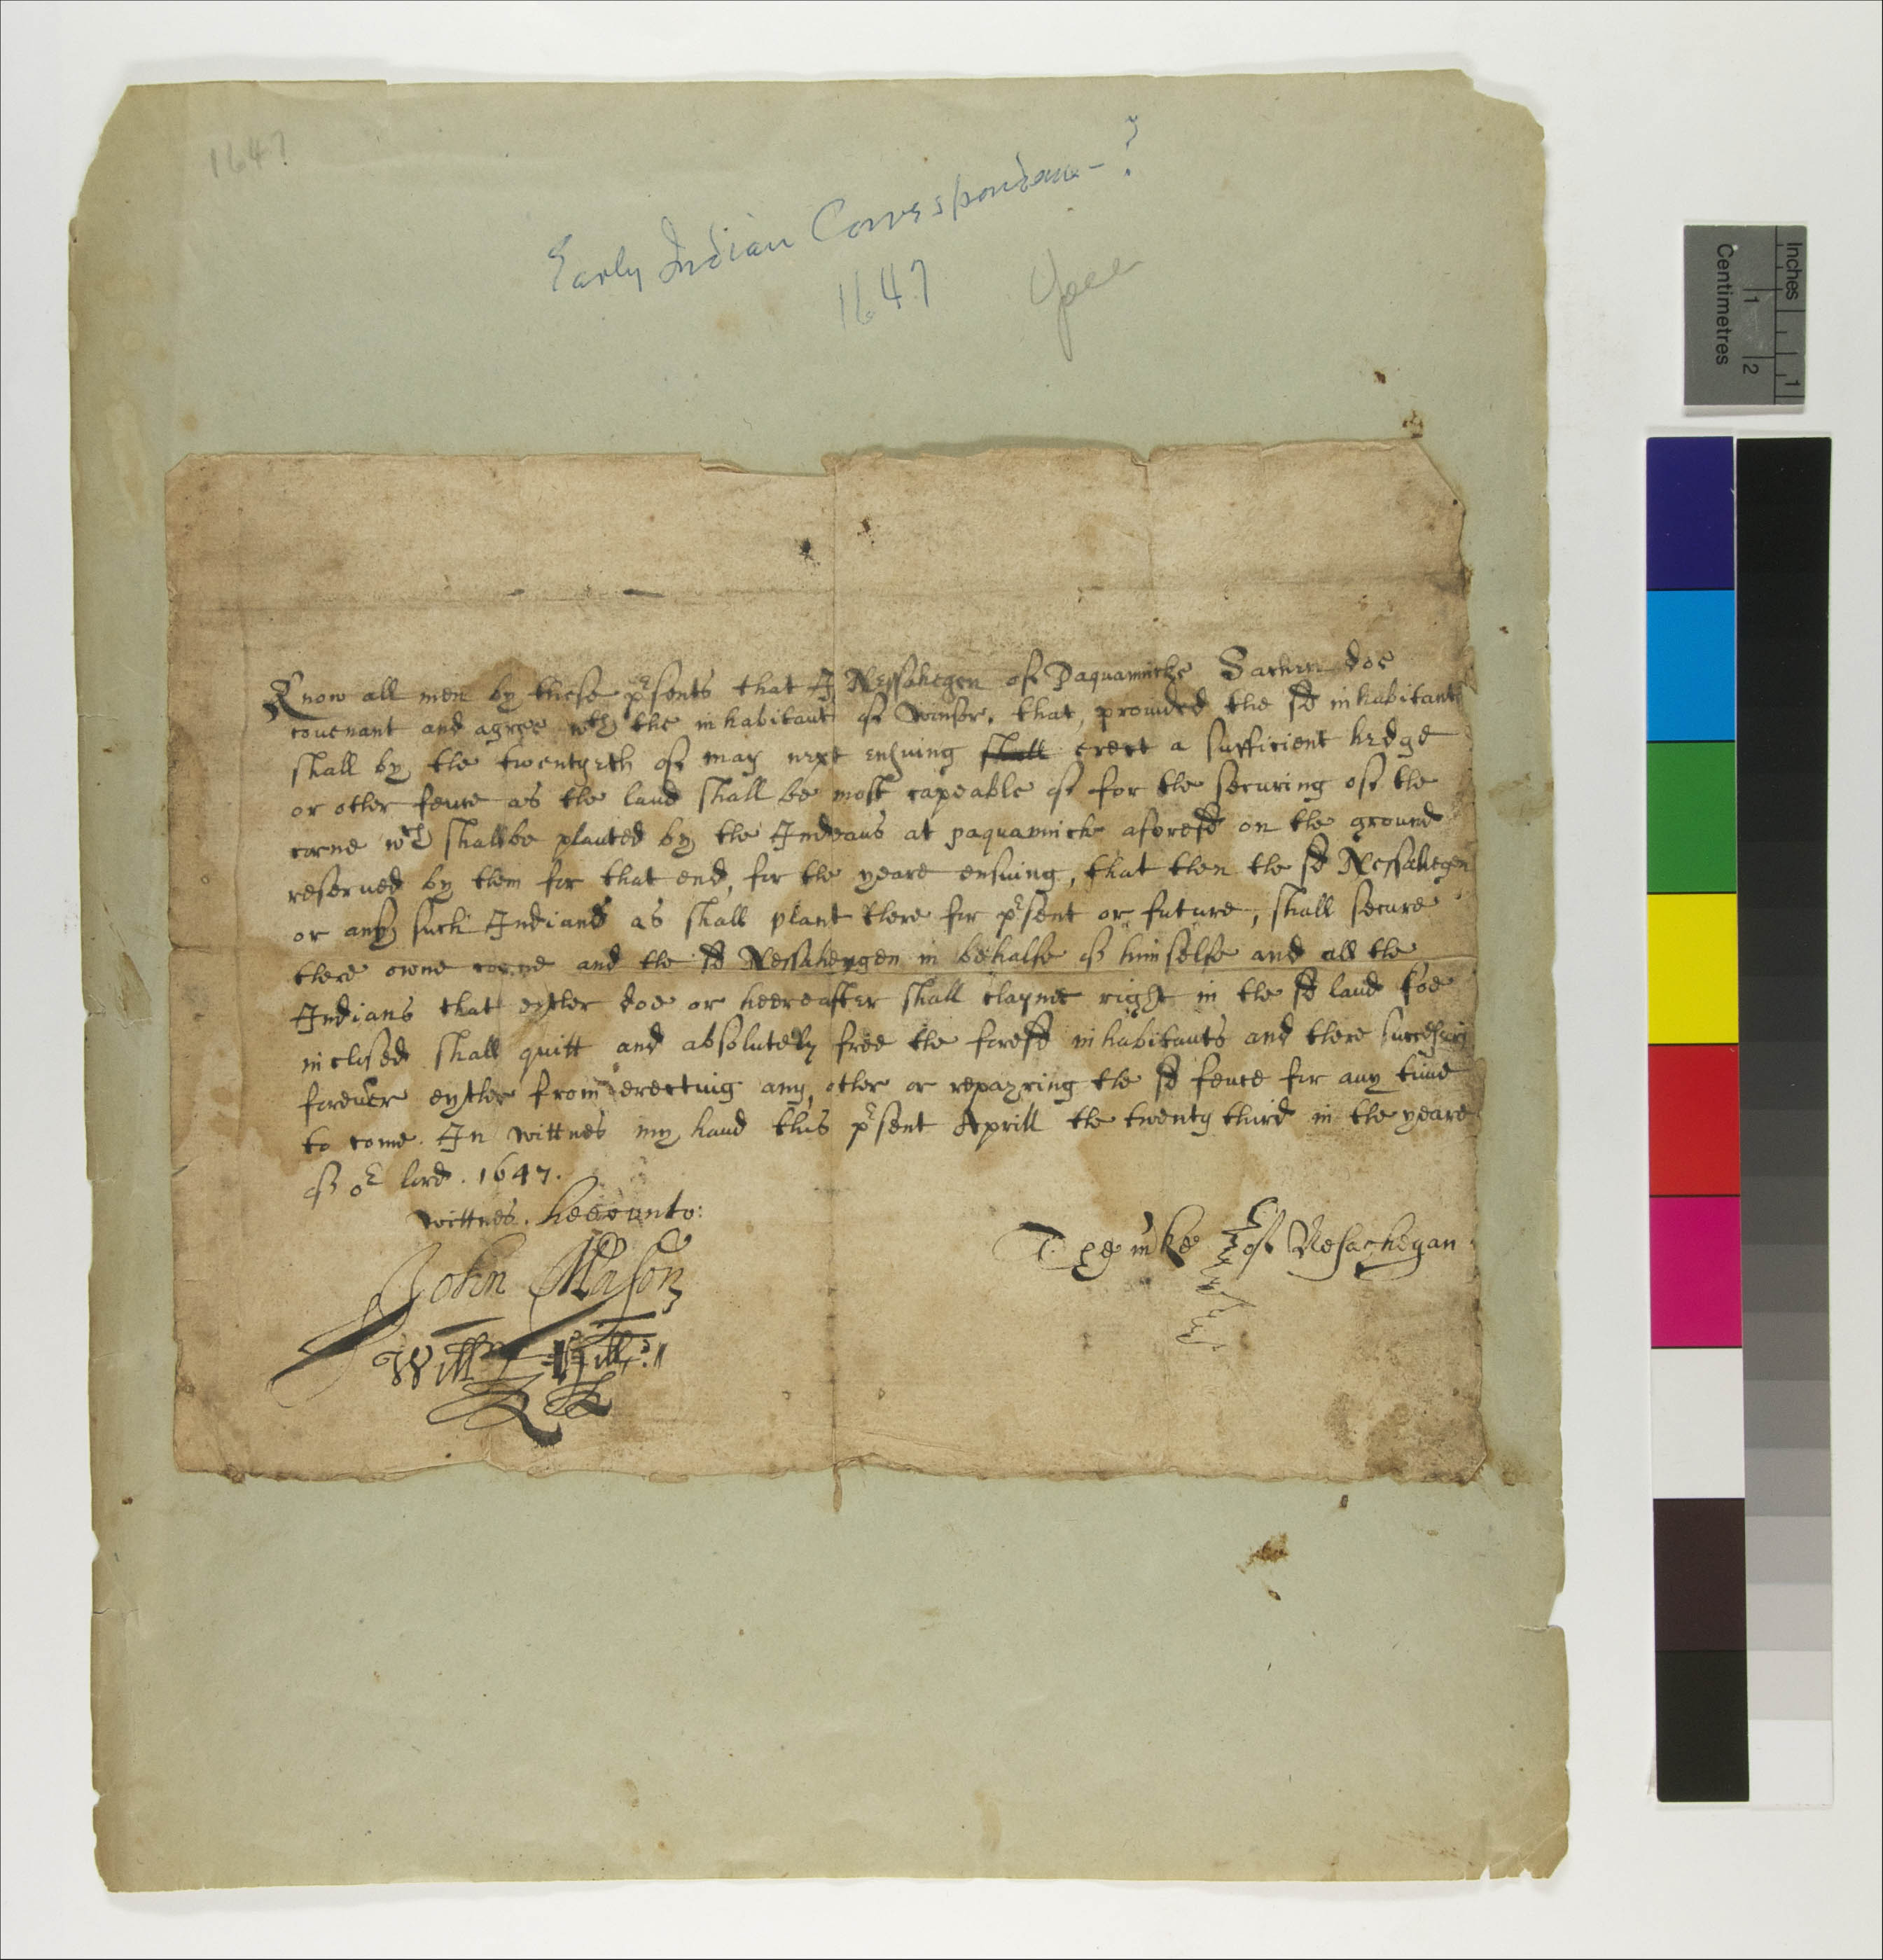 1647
Early Indian Correspondence - ?
1647
Know all men by these pr sents that I Nessahegen of Paquanicke Sachem doe
couenant and agree wth the inhabitants of Winsor, that, prouided the sd inhabitants
shall by the twentyeth of may next ensuing shall erect a sufficient hedge
or other fence as the land shall be most capeable of for the securing of the
corne wch shalbe planted by the Indeans at paquanicke aforesd on the ground
reserued by them for that end, for the yeare ensuing, that then the sd Nessahegen
or any such Indians as shall plant there for pr sent or future, shall secure
there owne corne and the sd Nessahegen in behalfe of himselfe and all the
Indians that eyther doe or heereafter shall clayme right in the sd land soe
inclosed shall quitt and absolutely free the foresd inhabitants and there successors
foreuer eyther from erecting any other or repayring the sd fence for any time
to come. In wittnes my hand this pr sent Aprill the twenty third in the yeare
of or lord. 1647.
wittnes. heereunto:
John Mason
Will
of Nesachegan
Inches
1
Centimetres
1
2